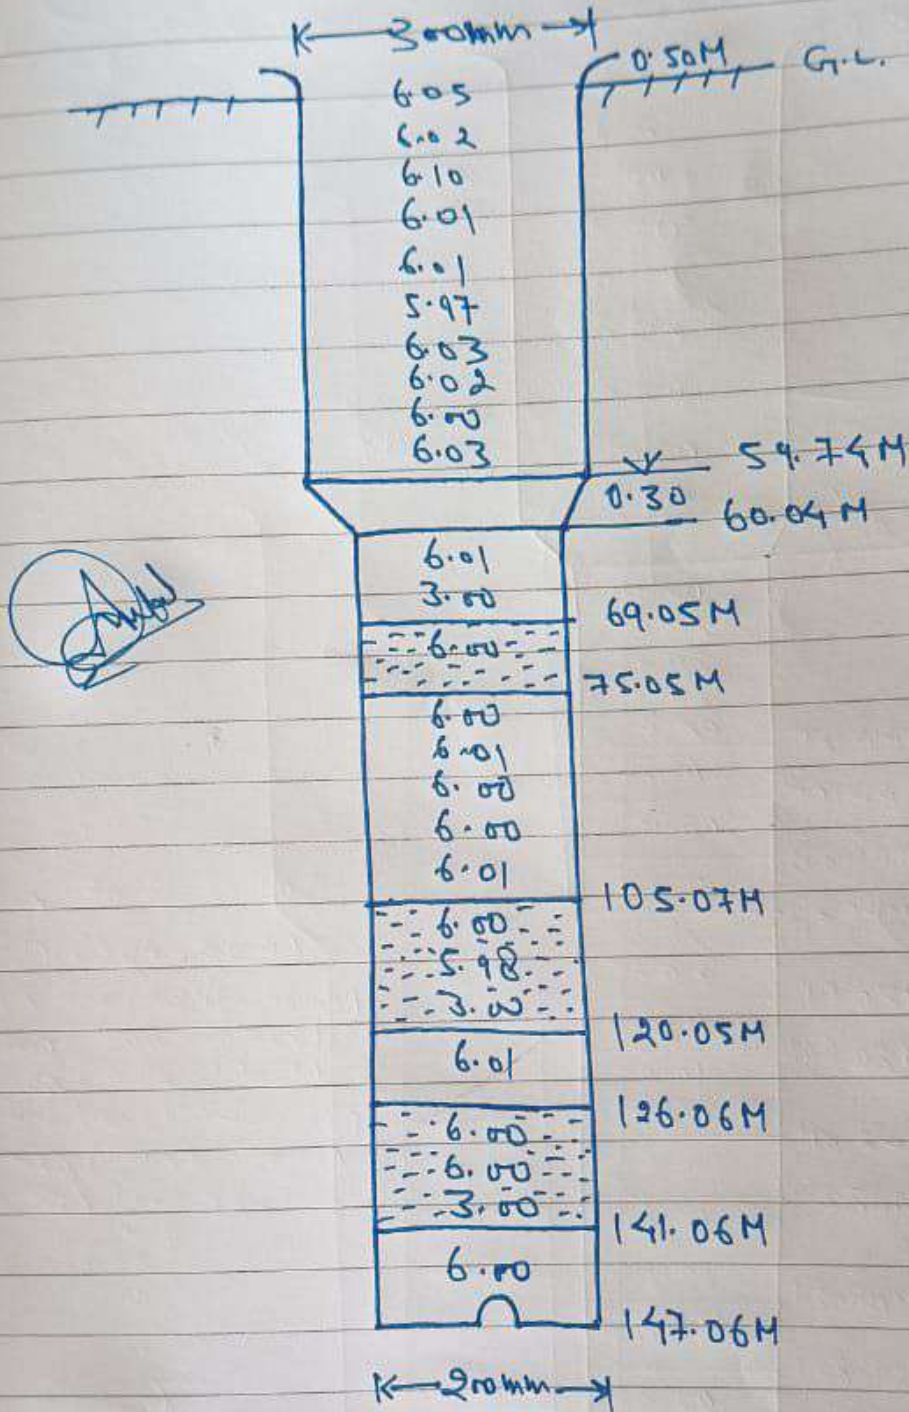 300mm
0.50M G.L.
6.05
6.02
6.10
6.01
6.01
5.97
6.03
6.02
6.00
6.03
59.74M
0.30
60.04M
6.01
3.00
69.05M
6.00
75.05M
6.00
6.01
6.00
6.00
6.01
105.07M
6.00
5.98
3.00
120.05M
6.01
126.06M
6.00
6.00
3.00
141.06M
6.00
147.06M
200mm